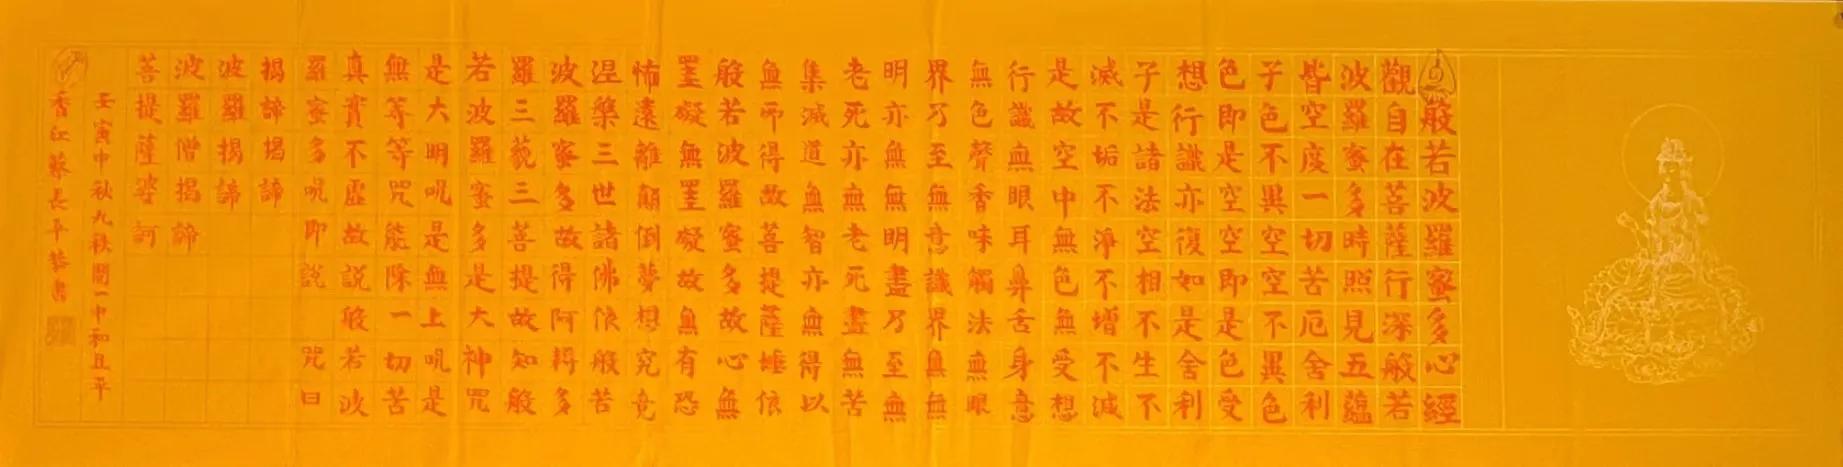 般若波羅蜜多心經
觀自在菩薩行深般若
波羅蜜多時照見五蘊
皆空度一切苦厄舍利
子色不異空空不異色
色即是空空即是色受
想行識亦復如是舍利
子是諸法空相不生不
滅不垢不淨不增不減
是故空中無色無受想
行識無眼耳鼻舌身意
無色聲香味觸法無眼
界乃至無意識界無無
明亦無無明盡乃至無
老死亦無老死盡無苦
集滅道無智亦無得以
無所得故菩提薩埵依
般若波羅蜜多故心無
罣礙無罣礙故無有恐
怖遠離顛倒夢想究竟
涅槃三世諸佛依般若
波羅蜜多故得阿耨多
羅三藐三菩提故知般
若波羅蜜多是大神咒
是大明呪是無上呪是
無等等咒能除一切苦
真實不虛故說般若波
羅蜜多呪即說 咒曰
揭諦揭諦
波羅揭諦
波羅僧揭諦
菩提薩婆訶
壬寅中秋九秩開一中和且平
香江蔡長平恭書